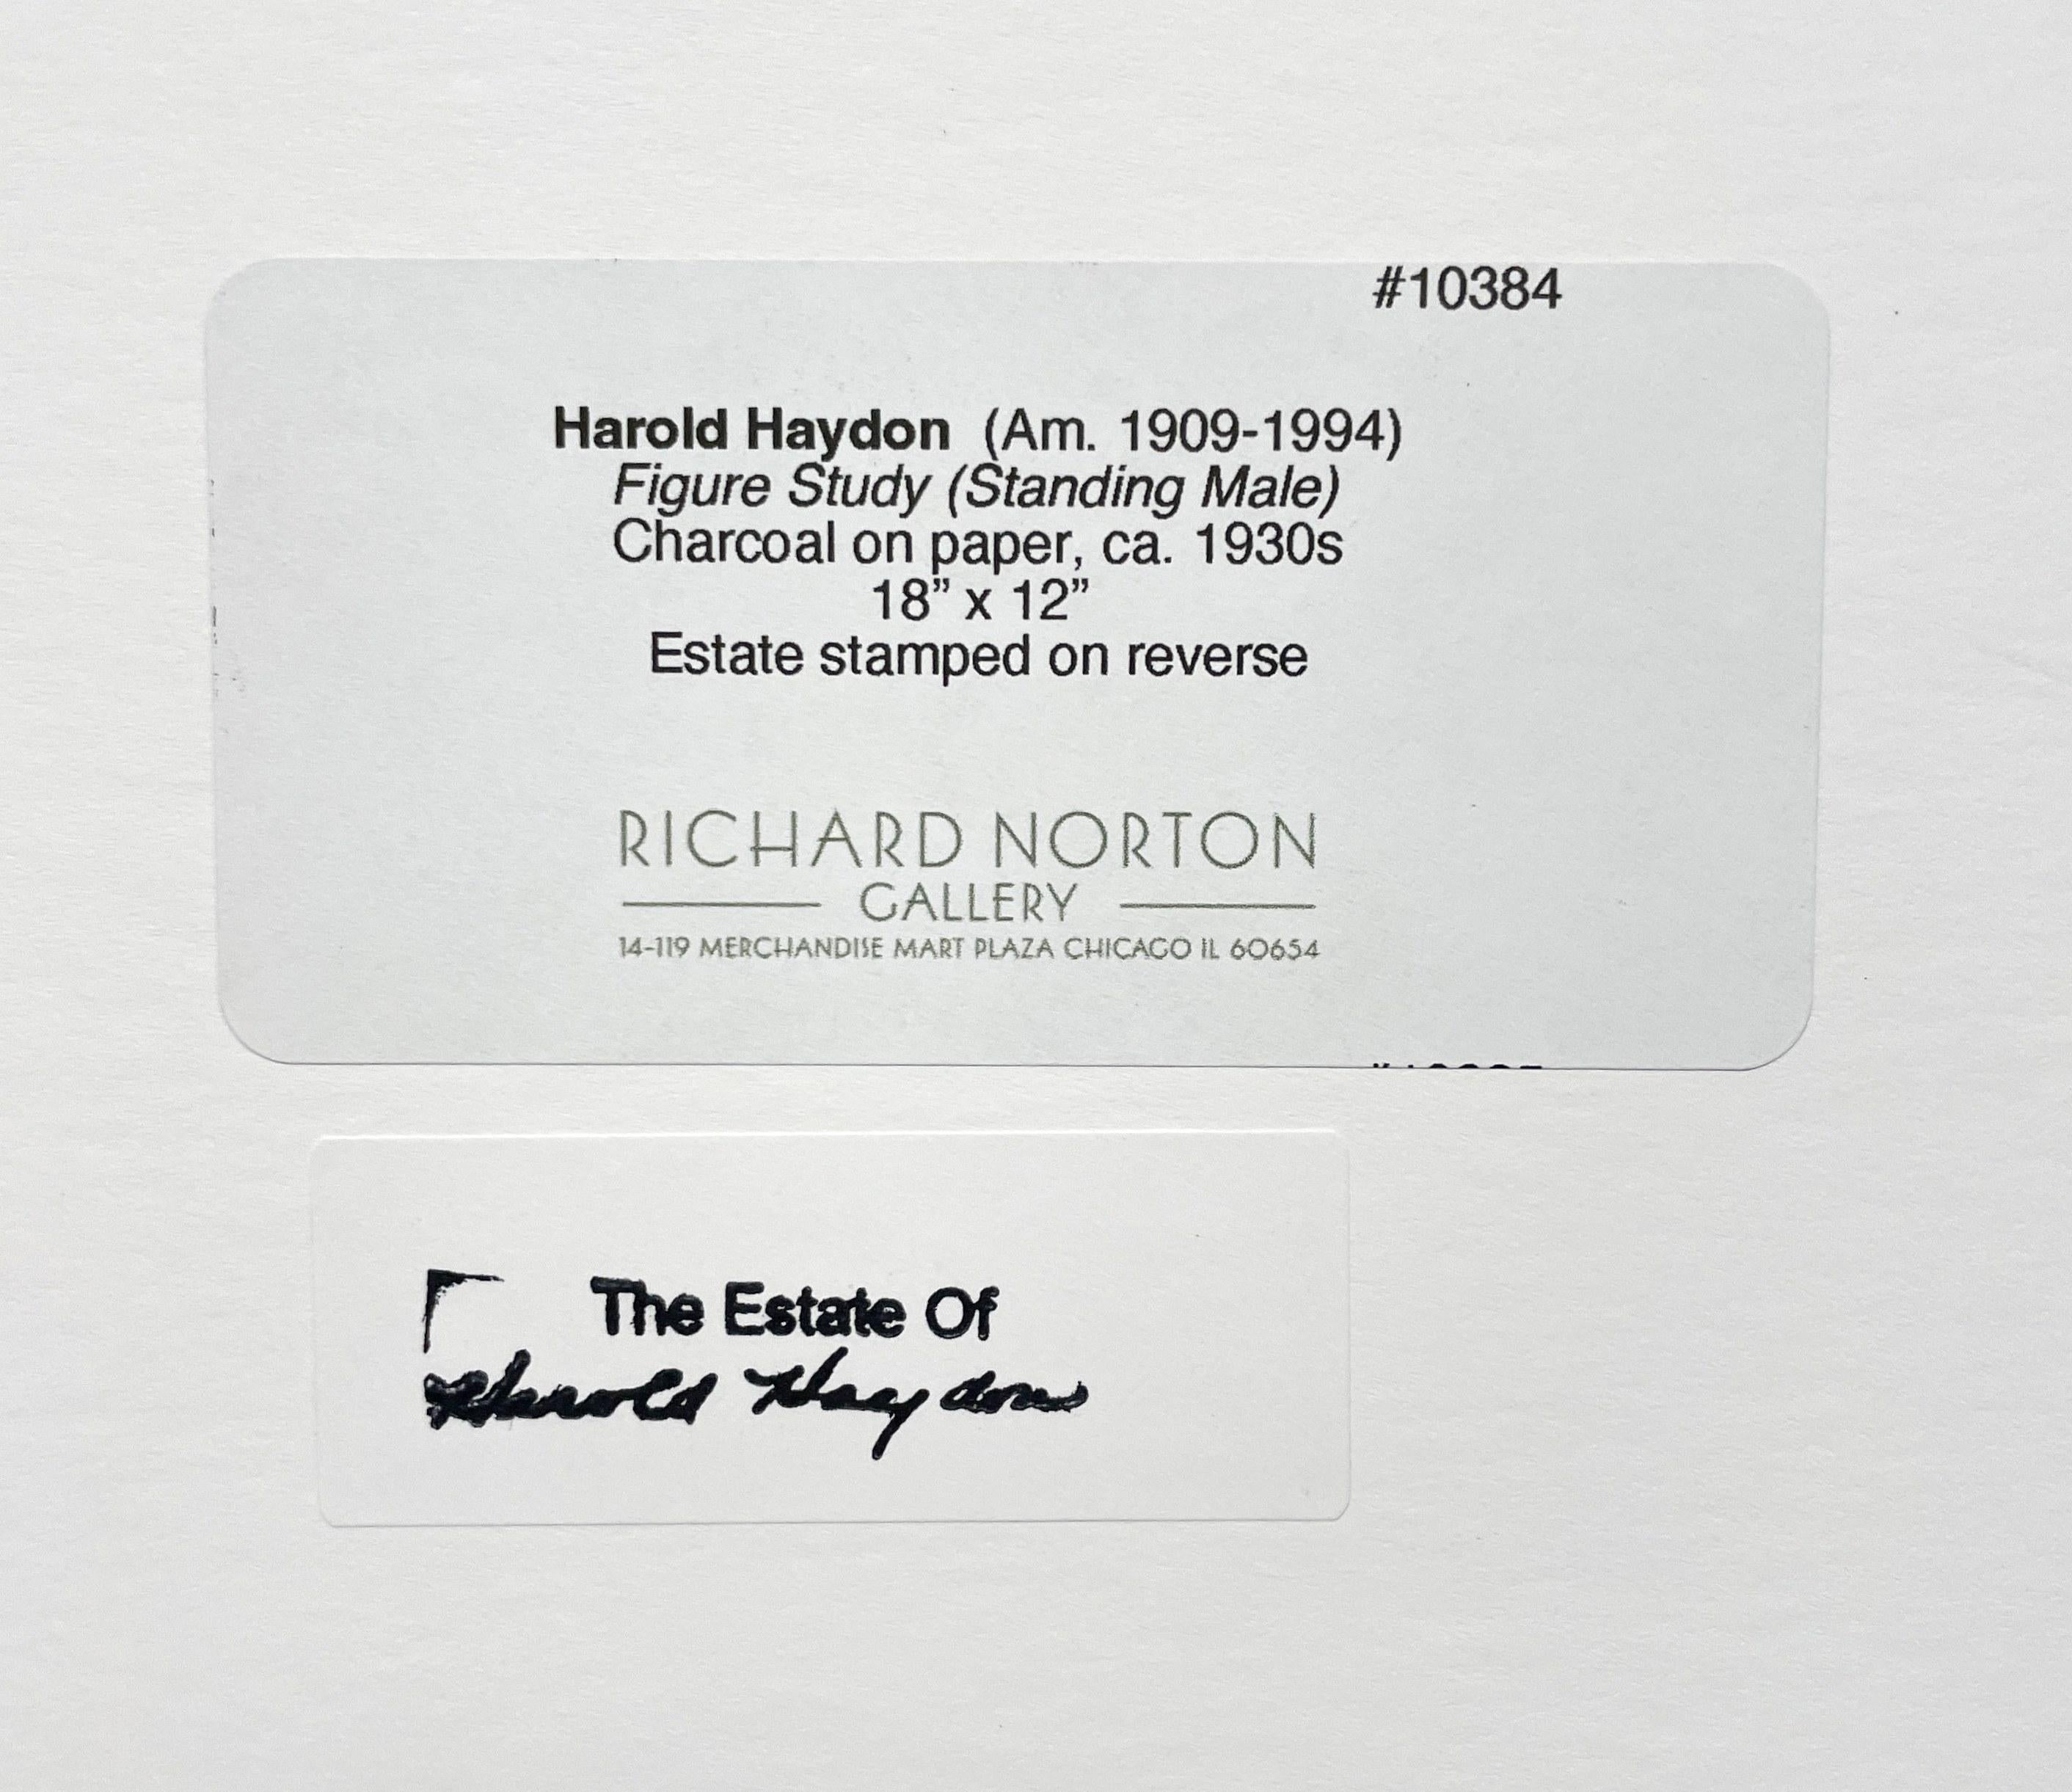 #10384
Harold Haydon (Am. 1909-1994)
Figure Study (Standing Male)
Charcoal on paper, ca. 1930s
18” x 12”
Estate stamped on reverse
RICHARD NORTON
GALLERY
14-119 MERCHANDISE MART PLAZA CHICAGO IL 60654
The Estate Of
Harold Haydon